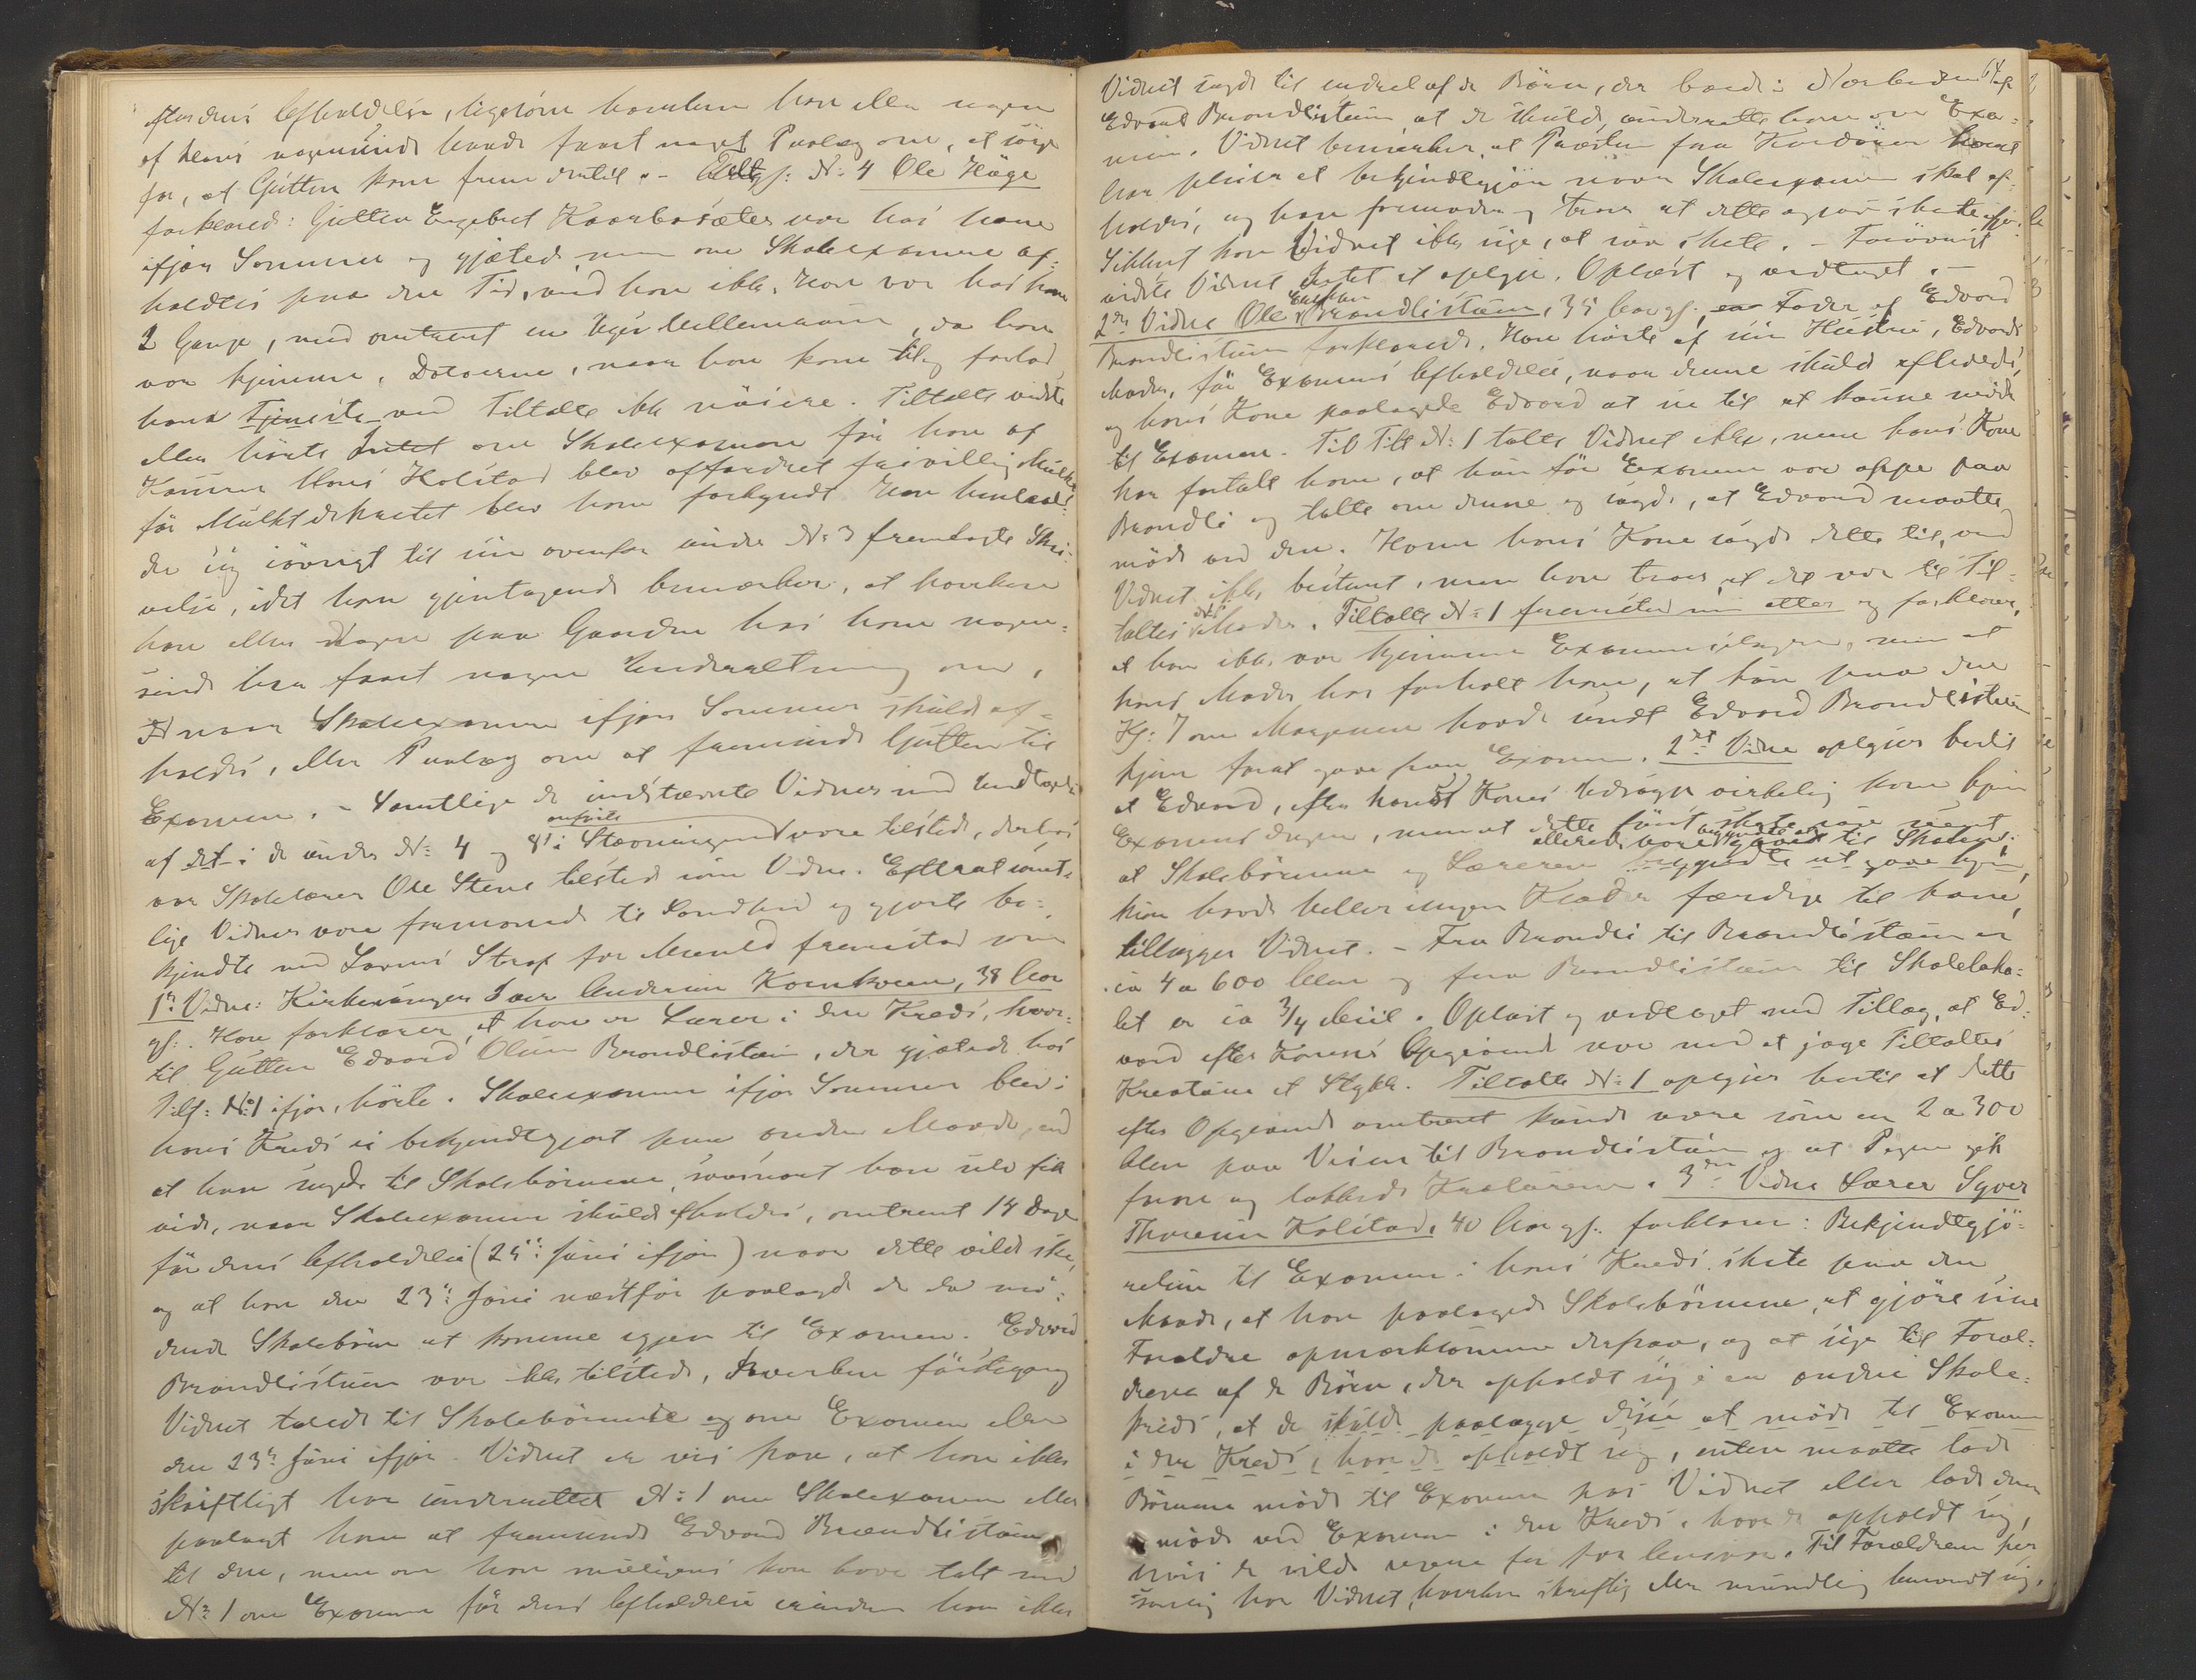 dens Afholdelse, ligesom hverken han eller nogen
af hans nogensinde havde faaet noget Paalæg om, at sörge
for, at Gutten kom frem dertil. – Tiltgj: N: 4 Ole Häge
forklared: Gutten Engebret Kaarbösæter var hos ham
ifjor Sommer og gjæted, men om Skoleexamen af-
holdtes paa den Tid, ved han ikke. Han var hos ham
2 Gange, med omtrent en Uges Mellemrum, da han
var hjemme. Datoerne, naar han kom til og forlod
hans Tjeneste ved Tiltalte ikke nöiere. Tiltalte vidste
eller hörte Intet om Skoleexamen för han af
Hans Kolstad blev affordret frivillig Mulkt
för Mulktdekretet blev ham forkyndt. Han henhold-
der sig iövrigt til sin ovenfor under N: 3 fremlagte Skri-
velse, idet han gjentagende bemærker, at hverken
han eller Nogen paa Gaarden hos ham nogen-
sinde har faaet nogen Underretning om,
naar Skoleexamen ifjor Sommer skulde af-
holdes, eller Paalæg om at fremsende Gutten til
Examen. – Samtlige de indstævnte Vidner med Undtagelse
af det i de under N: 4 og 8 i Stævningen anförte vare tilstede, derhos
var Skolelærer Ole Stene tilstede som Vidne. Efterat samt-
lige Vidner vare formanede til Sandhed og gjorte be-
kjendte med Lovens Straf for Meened fremstod som
1te Vidne: Kirkesanger Iver Andersen Kornkveen, 38 Aar
gl: Han forklarer, at han er Lærer i den Kreds, hvor-
til Gutten Edvard Olsen Brandlistuen, der gjætede hos
Tilt: N: 1 ifjor, hörte. Skoleexamen ifjor Sommer blev i
hans Kreds ei bekjendtgjort paa anden Maade, end
at han sagde til Skolebörnene, saasnart han selv fik
vide, naar Skoleexamen skulde afholdes, omtrent 14 Dage
för dens Afholdelse (25de Juni ifjor) naar dette vilde ske,
og at han den 23de Juni næstfor paalagde de da mö-
dende Skolebörn at komme igjen til Examen. Edvard
Brandlistuen var ikke tilstede, hverken förstegang
Vidnet talede til Skolebörnene om Examen eller
den 23de Juni ifjor. Vidnet er vis paa, at han ikke
skriftligt har underrettet N: 1 om Skoleexamen eller
paalagt ham at fremsende Edvard Brandlistuen
til den, men om han muligens kan have talt med
N: 1 om Examen för dens Afholdelse erindrer han ikke
Vidnet sagde til endeel af de Börn, der boede i Nærheden af
Edvard Brandlistuen, at de skulde underrette ham om Exa-
men. Vidnet bemærker, at Præsten fra Kirkedören
har pleiet at bekjendtgjöre naar Skoleexamen skal af-
holdes, og han formoder og troer at dette ogsaa skete ifjor.
Sikkert kan Vidnet ikke sige, at saa skete. – Forövrigt
vidste Vidnet Intet at oplyse. Oplæst og vedtaget. –
2det Vidne Ole Brandlistuen, 35 Aar gl:, Fader af Edvard
Brandlistuen forklarede. Han hörte af sin Hustru, Edvards
Moder, för Examens Afholdelse, naar denne skulde afholdes,
og hans Kone paalagde Edvard at se til at kunne möde
til Examen. Til Tilt N: 1 talte Vidnet ikke, men hans Kone
har fortalt ham, at hun för Examen var oppe paa
Brandli og talte om denne og sagde, at Edvard maatte
möde ved den. Hvem hans Kone sagde dette til, ved
Vidnet ikke bestemt, men han troer, at det var til Til-
taltes Moder. Tiltalte N: 1 fremsted nu atter og forklarer,
at han ikke var hjemme Examensdagen, men at
hans Moder har fortalt ham, at hun paa den
Kl: 7 om Morgenen havde sendt Edvard Brandlistuen
hjem forat gaae paa Examen. 2det Vidne oplyser hertil
at Edvard, efter hans Kones Udsagn virkelig kom hjem
Examensdagen, men at dette först skete saa sent
at Skolebörnene og Læreren allerede vare til Skolen;
hun havde heller ingen Klæder færdige til ham,
tillægger Vidnet. – Fra Brandli til Brandlistuen er
ca 4 a 600 Alen og fra Brandlistuen til Skoleloka-
let er ca 3/4 Miil. Oplæst og vedtaget med Tillæg, at Ed-
vard efter Konens Opgivende var med at jage Tiltaltes
Kreaturer et Stykke. Tiltalte N: 1 oplyser hertil at dette
efter Opgivende omtrent kunde være som en 2 a 300
Alen paa Veien til Brandlistuen og at Pigen gik
foran og lokkede Kreaturene. 3die Vidne Lærer Syver
Thoresen Kolstad, 40 Aar gl. forklarer: Bekjendtgjö-
relsen til Examen i hans Kreds skete paa den
Maade, at han paalagde Skolebörnene, at gjöre sine
Forældre opmærksomme derpaa, og at sige til Foræl-
drene af de Börn, der opholdt sig i en anden Skole-
kreds, at de skulde paalægge disse at möde til Examen
i den Kreds, hvor de opholdt sig, enten maatte lade
Börnene möde til Examen hos Vidnet eller lade dem
möde ved Examen i den Kreds, hvor de opholdt sig,
hvis de vilde være fri for Ansvar. Til Forældrene per
sonlig har Vidnet, hverken skriftlig eller mundlig henvendt sig.